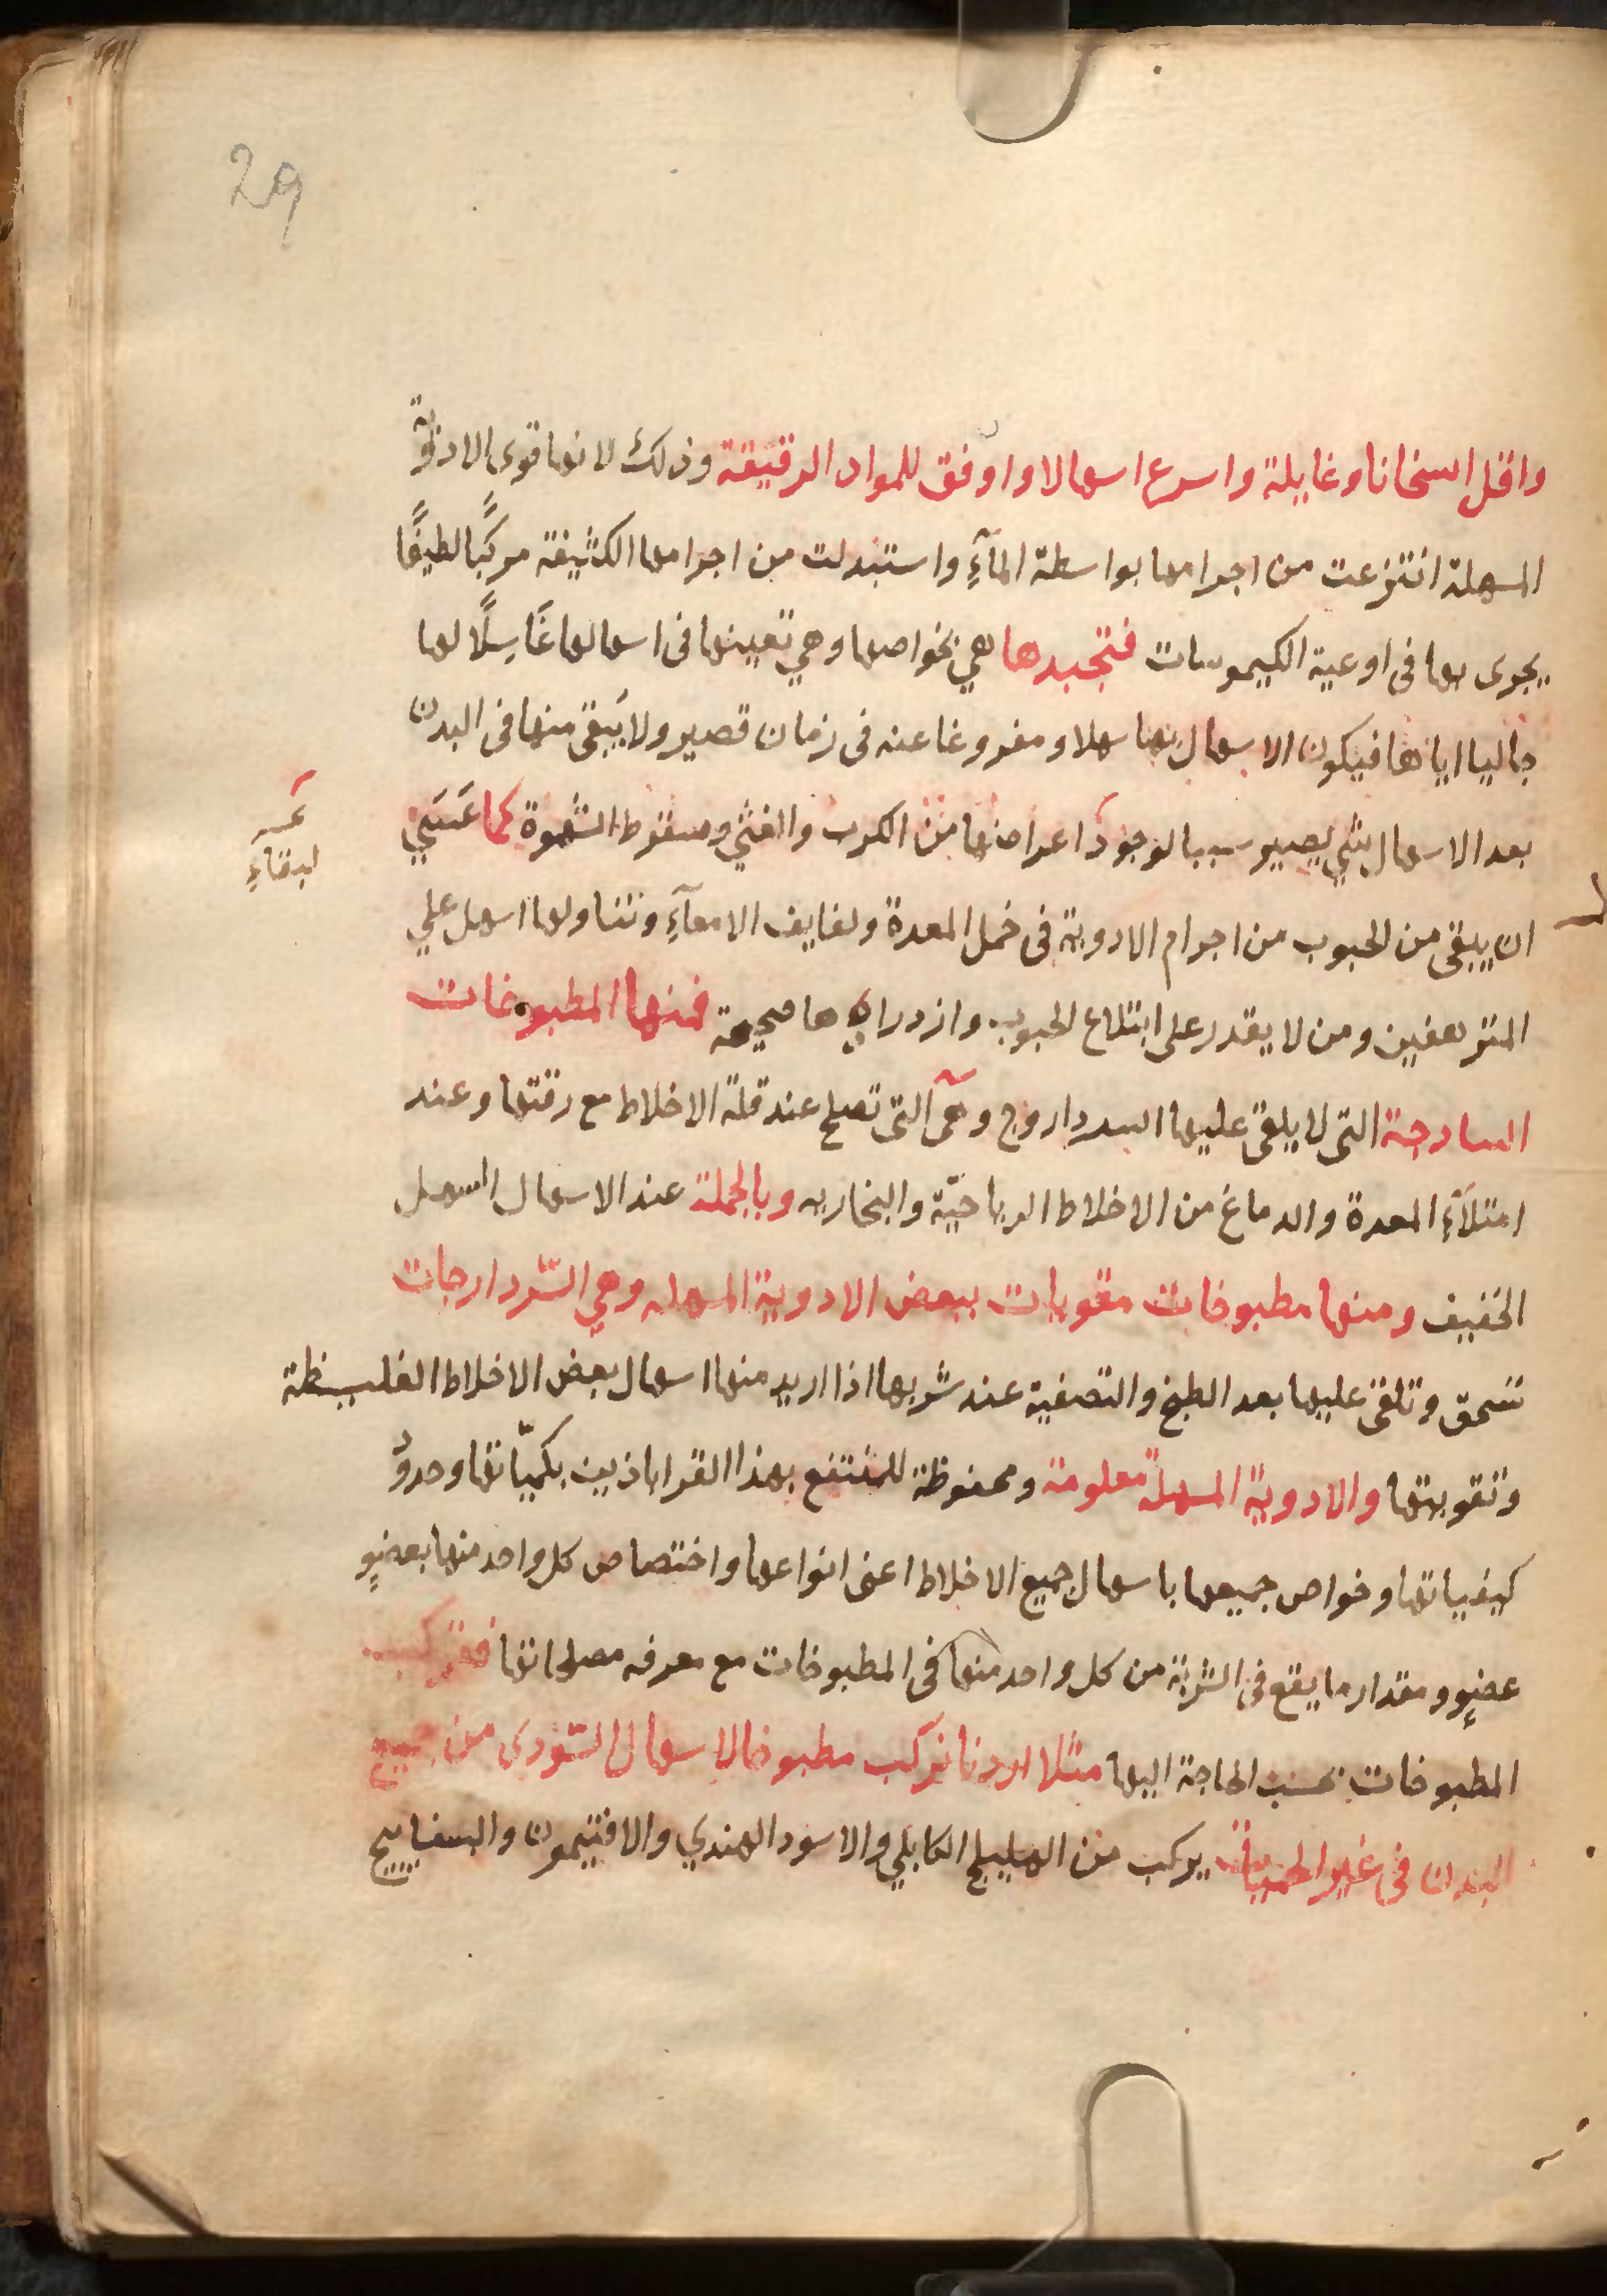 29
واقل اسخانا وغايلة واسرع اسهالا واوفق للمواد الرقيقة وذلك لانها قوى الادوية
المسهلة انتزعت من اجرامها بواسطة المآءِ واستبدلت من اجرامها الكثيفة مركبًا لطيفًا
يجرى بها فى اوعية الكيموسات فتجبدها هي بخواصها وهي تعينها فى اسهالها غَاسِلًا لها
جاليا اياها فيكون الاسهال بها سهلا ومفروغا عنه فى زمان قصير ولا يَبقى منها فى البدن
بعد الاسهال شي يصير سببا لوجود اعراضها من الكرب والغثي وسقوط الشهوة كما عَسَي
عسـ
لبقاءِ
ان يبقى من الحبوب من اجرام الادوية فى خمل المعدة ولفايف الامعآءِ وتناولها اسهل علي
المترهفين ومن لا يقدر على ابتلاع الحبوب وازدرايها صحيحة فمنها المطبوخات
السادجة التى لا يلقى عليها السردار وج وهى التى تصلح عند قلة الاخلاط مع رقتها وعند
امتلآءِ المعدة والدماغ من الاخلاط الرياحيّة والبخاريه وبالجملة عند الاسهال السهل
الخفيف ومنها مطبوخات مقويات ببعض الادوية المسهله وهي السّردارجات
تسحق وتلقى عليها بعد الطبخ والتصفية عند شربها اذا اريد منها اسهال بعض الاخلاط الغليظة
وتقويتها والادوية المسهلة معلومة ومحفوظة للمنتفع بهذا القراباذين بكميّاتها وحدود
كيفياتها وخواص جميعها باسهال جميع الاخلاط اعنى انواعها واختصاص كل واحد منها بعضوٍ
عضوٍ ومقدار ما يقع فى الشربة من كل واحد منها فى المطبوخات مع معرفه مصلحاتها فتركب
المطبوخات بحسب الحاجة اليها مثلا اردنا نركب مطبوخا لاسهال السّودى من جميع
البدن فى غير الحميات يركب من الهليلج الكابلي والاسود الهندي والافتيمون والبسفايج